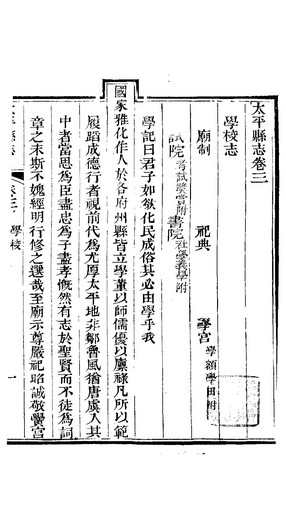 太平縣志卷三
學校志
廟制 祀典 學宮 學額學田附
試院 考試奬賞附 書院 社學義學附
學記曰君子如欲化民成俗其必由學乎我
國家雅化作人於各府州縣皆立學董以師儒優以廩祿凡所以範
履蹈成德行者視前代為尤厚太平地非鄒魯風猶唐虞入其
中者當思為臣盡忠為子盡孝慨然有志於聖賢而不徒為詞
章之末斯不愧經明行修之選哉至廟示尊嚴祀昭誠敬黌宮
學校
一